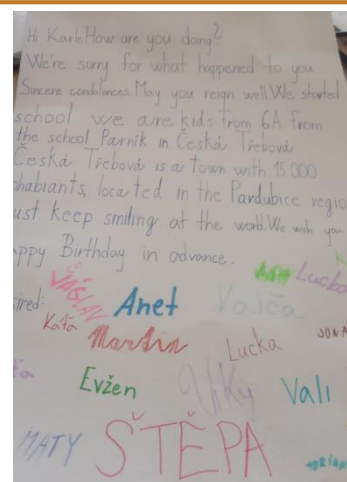 Hi Karle How are you doing?
We're sorry for what happened to you
Sincere condolences. May you reign well. We started
school we are kids from 6A from
the school Parnik in Česká Třebová
Česká Třebová is a town with 15 000
nhabiants, located in the Pardubice regio
ust keep smiling at the world. We wish you
appy Birthday in advance.
VÁCLAV Lucka
ired: Anet Valča
Kája Martin Lucka JONA
Evžen Viky Vali
MATY ŠTĚPA